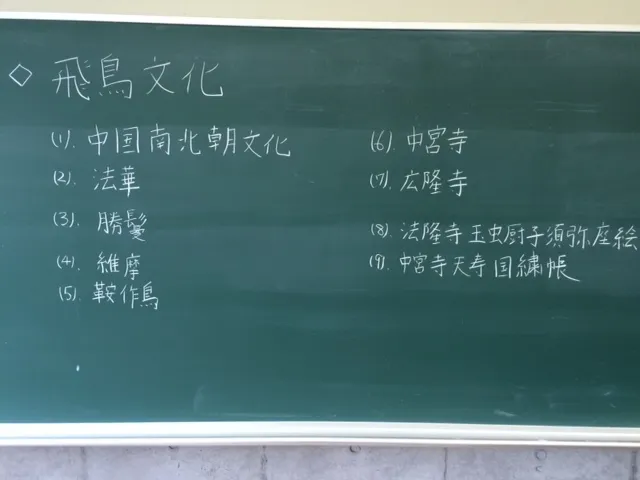 ◇ 飛鳥文化
(1). 中国南北朝文化
(2). 法華
(3). 勝鬘
(4). 維摩
(5). 鞍作鳥
(6). 中宮寺
(7). 広隆寺
(8). 法隆寺玉虫厨子須弥座絵
(9). 中宮寺天寿国繍帳